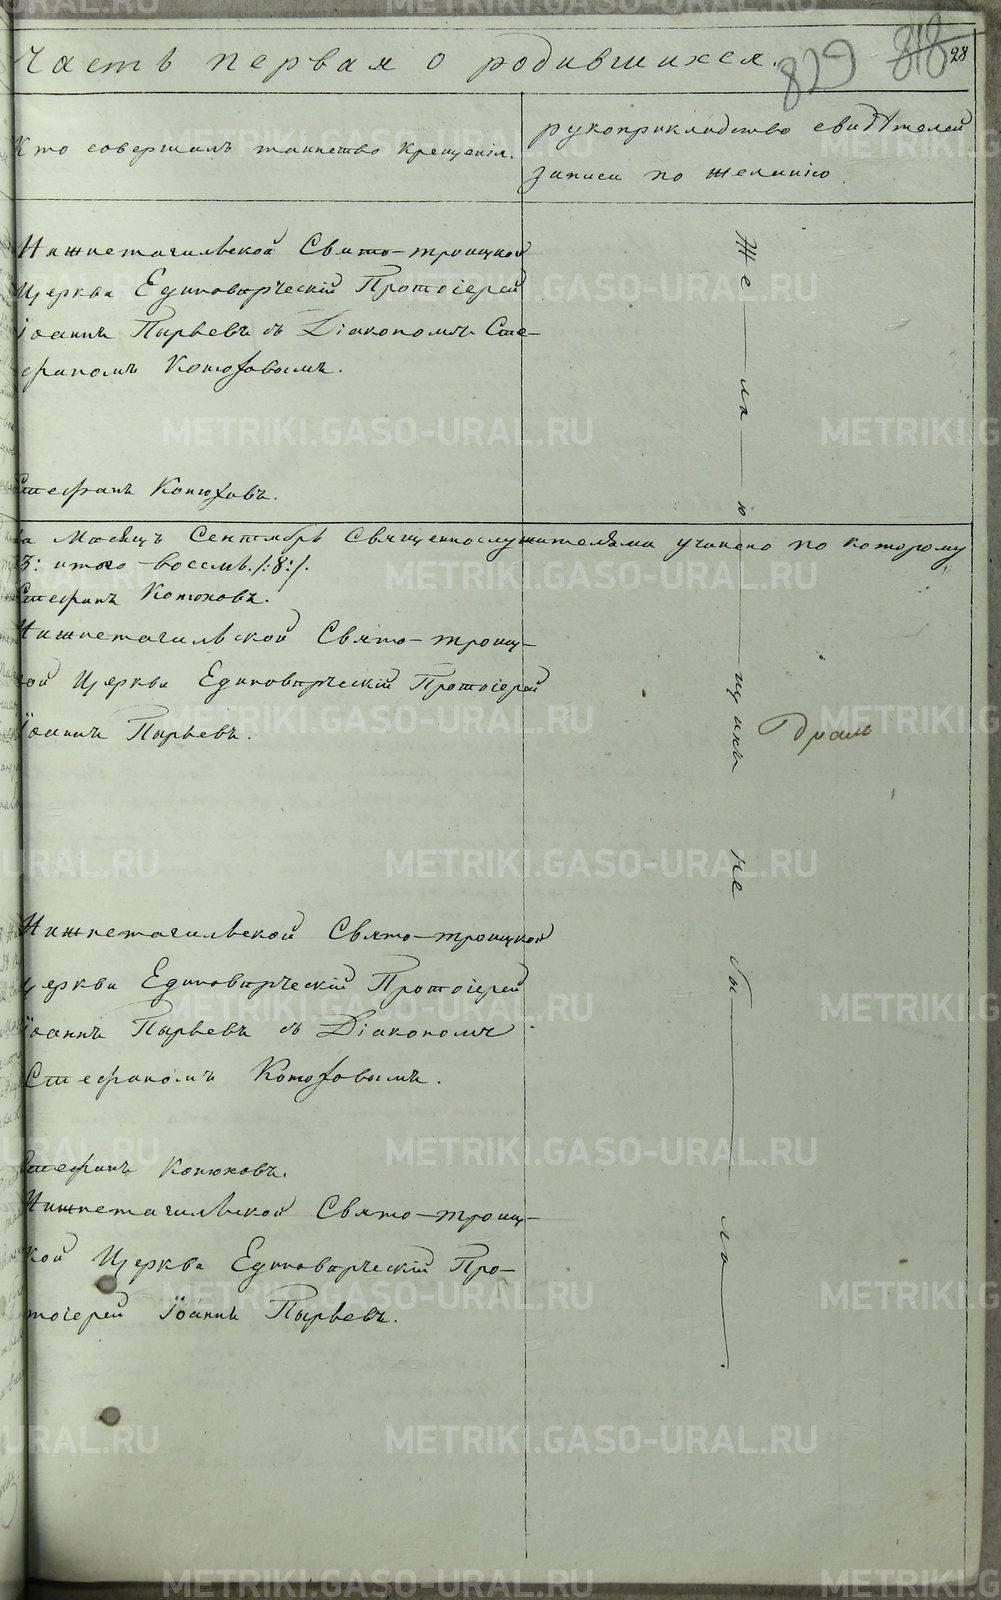 Часть первая о родившихся.
829 818 28
Кто совершалъ таинство крещенія.
рукоприкладство свидѣтелей
записи по желанію
Нижнетагильской Свято-троицкой
Церкви Единовѣрческій Протоіерей
Іоаннъ Пырьевъ съ Діакономъ Сте-
фаномъ Конюховымъ.
Стефанъ Конюховъ.
за Месяцъ Сентябрь Священнослужителями учинено по которому
3: итого восемь /:8:/.
Стефанъ Конюховъ.
Нижнетагильской Свято-троиц-
кой Церкви Единовѣрческій Протоіерей
Іоаннъ Пырьевъ.
Нижнетагильской Свято-троицкой
церкви Единовѣрческій Протоіерей
Іоаннъ Пырьевъ съ Діакономъ
Стефаномъ Конюховымъ.
Стефанъ Конюховъ.
Нижнетагильской Свято-троиц-
кой Церкви Единовѣрческій Про-
тоіерей Іоаннъ Пырьевъ.
Же ла ю щихъ не бы ло
METRIKI.GASO-URAL.RU